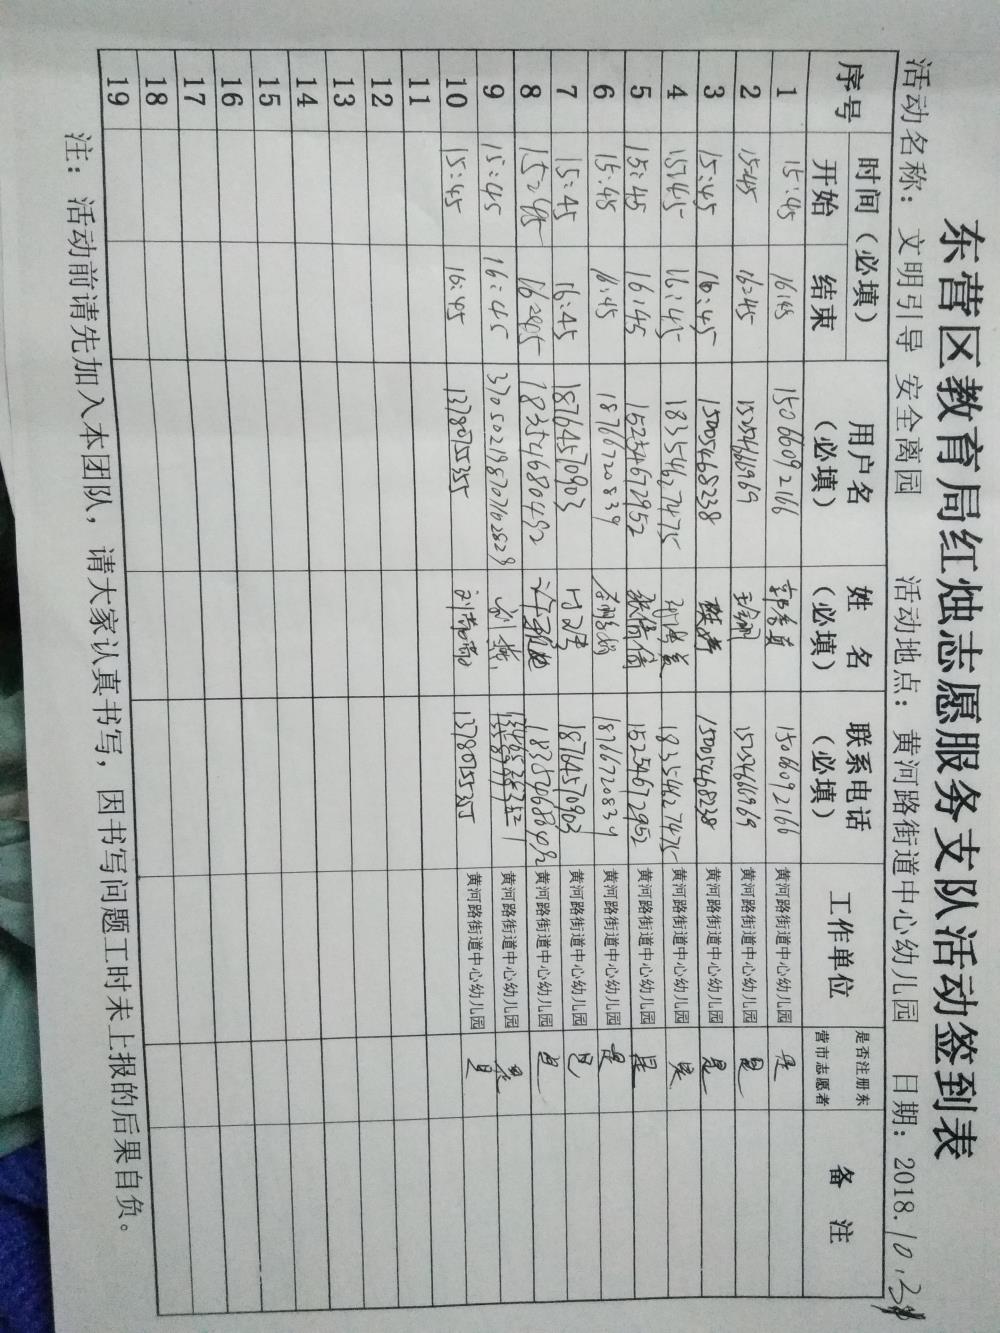 东营区教育局红烛志愿服务支队活动签到表
活动名称：文明引导 安全离园 活动地点：黄河路街道中心幼儿园 日期：2018.10.
序号 时间（必填） 用户名（必填） 姓 名（必填） 联系电话（必填） 工作单位 是否注册东营市志愿者 备 注
开始 结束
1 15:45 16:45 15066092166 15066092166 黄河路街道中心幼儿园 是
2 15:45 16:45 15254666969 15254666969 黄河路街道中心幼儿园 是
3 15:45 16:45 15005468238 15005468238 黄河路街道中心幼儿园 是
4 15:45 16:45 18354627475 18354627475 黄河路街道中心幼儿园 是
5 15:45 16:45 15254672952 张倩倩 15254672952 黄河路街道中心幼儿园 是
6 15:45 16:45 18766720839 18766720839 黄河路街道中心幼儿园 是
7 15:45 16:45 18764570903 18764570903 黄河路街道中心幼儿园 是
8 15:45 16:45 18354680492 18354680492 黄河路街道中心幼儿园 是
9 15:45 16:45 刘燕 黄河路街道中心幼儿园 是
10 15:45 16:45 13780755355 黄河路街道中心幼儿园 是
11
12
13
14
15
16
17
18
19
注：活动前请先加入本团队，请大家认真书写，因书写问题工时未上报的后果自负。